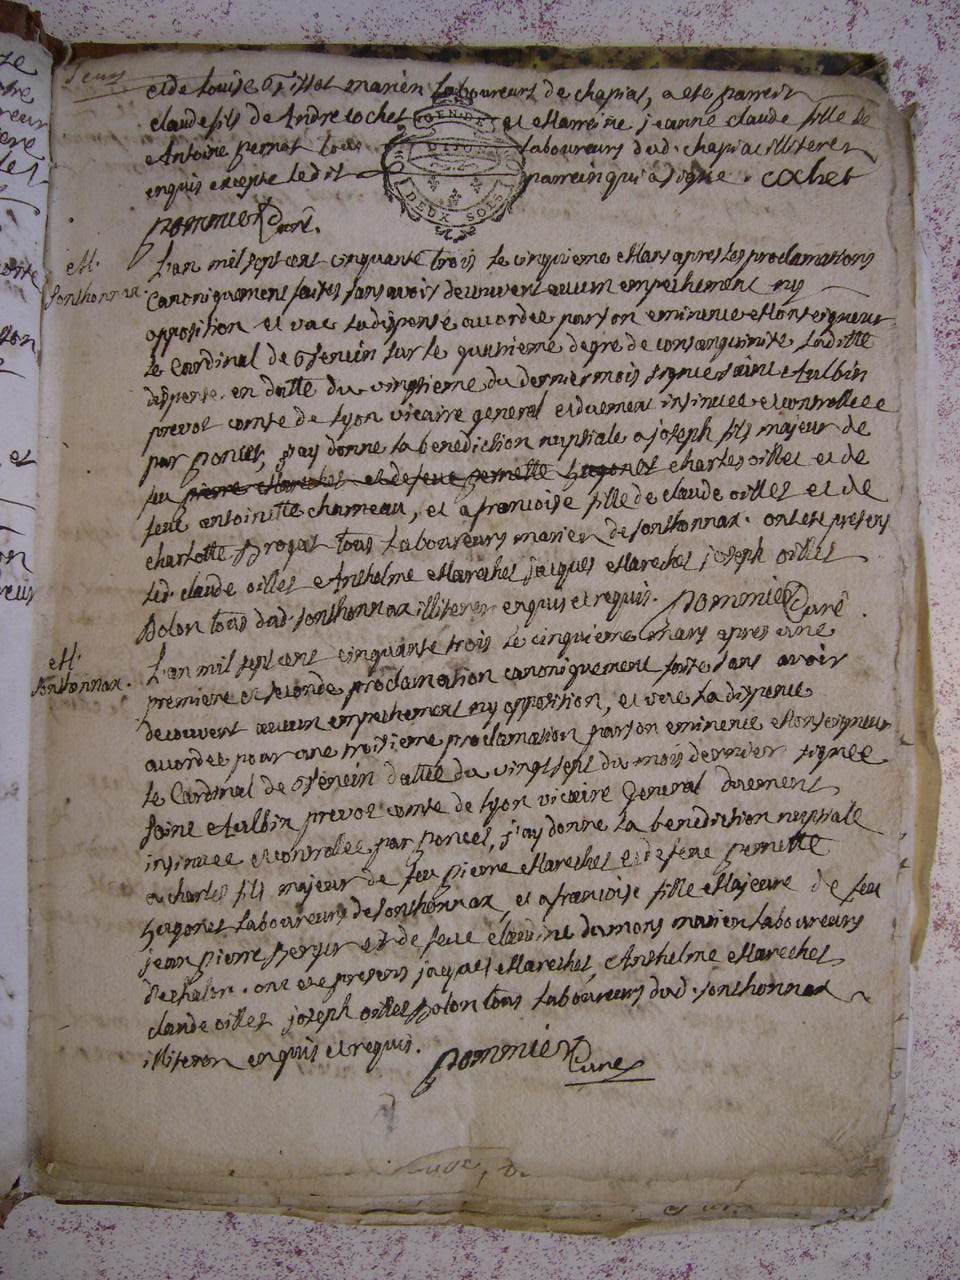 et de Louise Tissot mariés laboureurs de chapiat, a ete parrein
claude fils de Andre cochet et Marreine jeanne claude fille de
Antoine pernot tous laboureurs dud. chapia illiterez
enquis excepte ledit parrein qui a signe. cochet
GEN. DE DIJON
DEUX SOLS
pommier Curé.
M.
Sonthonnax.
L'an mil sept cent cinquante trois le cinquieme Mars apres les proclamations
Canoniquement faites sans avoir decouvert aucun empechement ny
opposition et vue la dispense accordee par son eminence Monseigneur
le Cardinal de Tencin sur le quatrieme degre de consanguinite laditte
dispense en datte du vingtieme du dernier mois signee saint Aulbin
prevot comte de Lyon vicaire general et duement insinuee et controllee
par poncet, j'ay donne la benediction nuptiale a joseph fils majeur de
feu pierre Marechet et de feue pernette hugonet charles oillet et de
feue antoinette charneau, et a francoise fille de claude oillet et de
charlotte Broquet tous laboureurs mariez de sonthonnax. ont ete presens
led. claude oillet Anthelme Marechet jacques Marechet joseph oillet
Bolon tous dud. sonthonnax illiterez enquis et requis. pommier Curé.
M.
Sonthonnax.
L'an mil sept cent cinquante trois le cinquieme mars apres une
premiere et seconde proclamation canoniquement faite sans avoir
decouvert aucun empechement ny opposition, et vue la dispence
accordee pour une troisieme proclamation par son eminence Monseigneur
le Cardinal de Tencin dattee du vingt sept du mois dernier signee
saint Aulbin prevot comte de Lyon vicaire general duement
insinuee et controlee par poncet, j'ay donne la benediction nuptiale
a charles fils majeur de feu pierre Marechet et de feue pernette
hugonet laboureurs de sonthonnax, et a francoise fille Majeure de feu
jean pierre Berger et de feue claudine damons mariez laboureurs
d'echalon. ont ete presens jacques Marechet, Anthelme Marechet
claude oillet joseph oillet Bolon tous laboureurs dud. sonthonnax
illiterez enquis et requis. pommier Curé